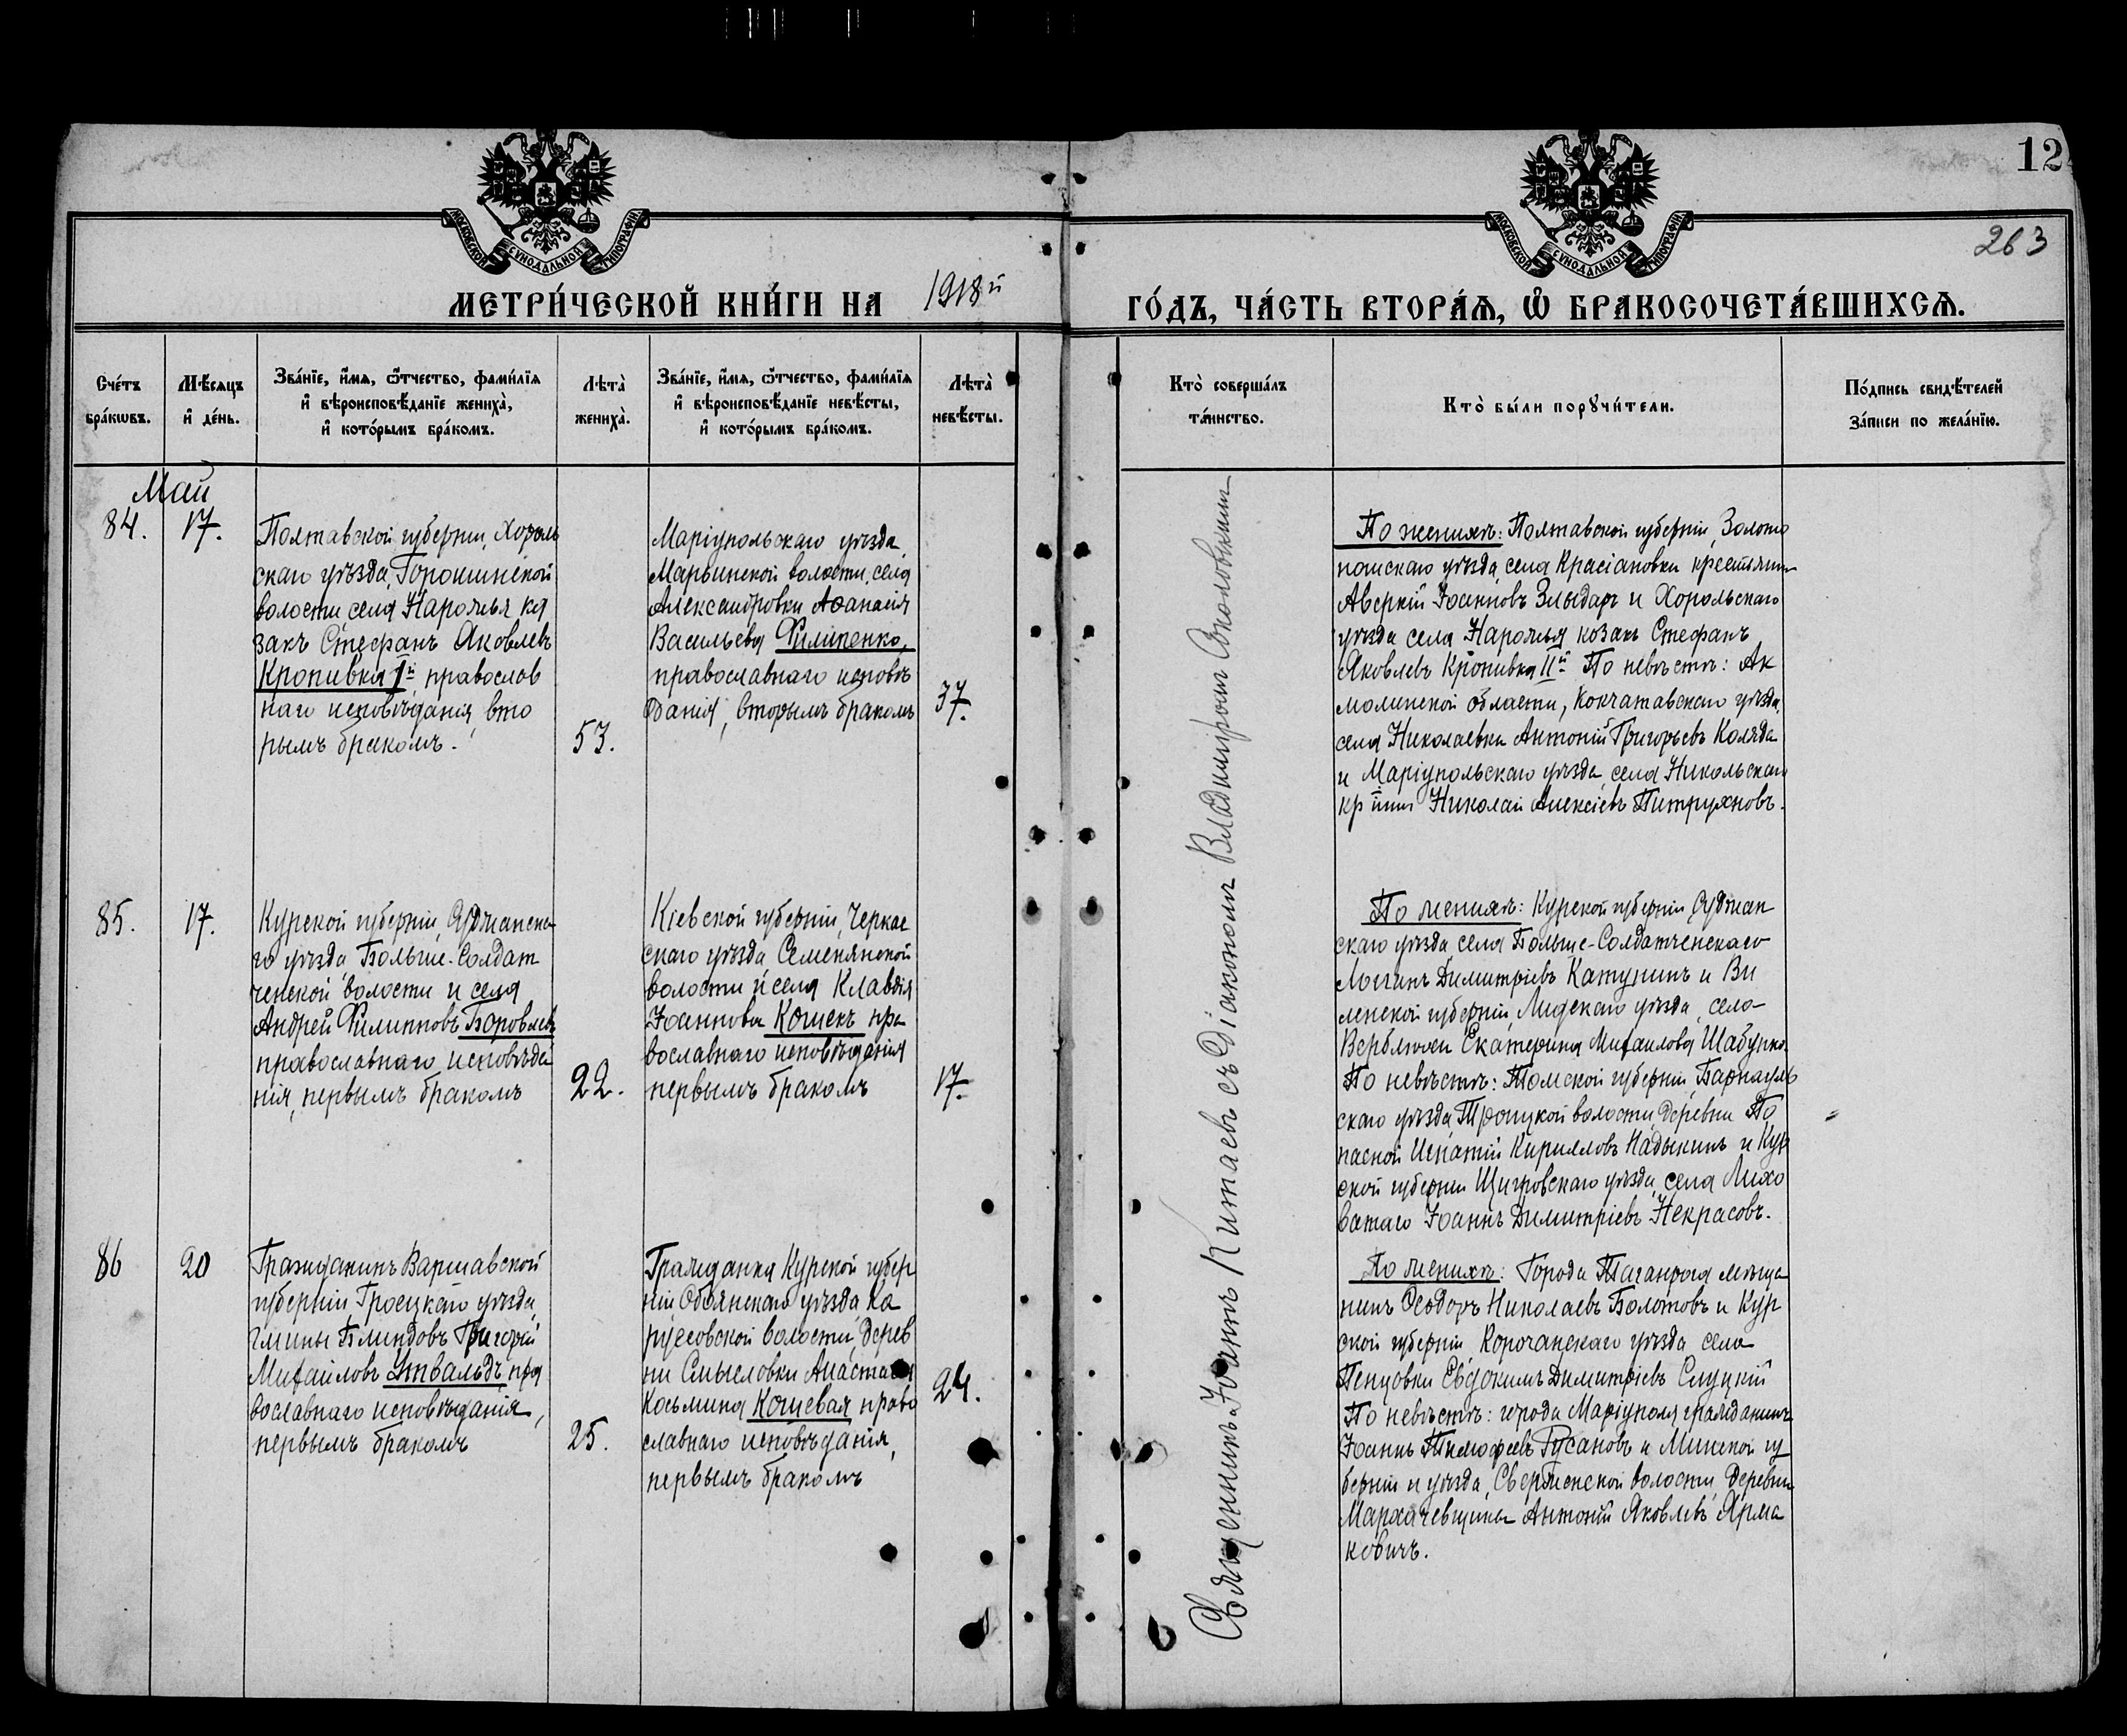 12
263
МОСКОВСКОЙ СѴНОДАЛЬНОЙ ТИПОГРАФІИ
МОСКОВСКОЙ СѴНОДАЛЬНОЙ ТИПОГРАФІИ
МЕТРИ́ЧЕСКОЙ КНИ́ГИ НА 1918й ГО́ДЪ, ЧА́СТЬ ВТОРА́Ѧ, Ѽ БРАКОСОЧЕТА́ВШИХСѦ.
Сче́тъ
бра́кѡвъ.
Мѣ́сяцъ
и҆ де́нь.
Зва́нїе, и҆́мѧ, ѻ҆́тчество, фами́лїѧ
и҆ вѣроисповѣ́данїе жениха̀,
и҆ кото́рымъ бра́комъ.
Лѣта̀
жениха̀.
Зва́нїе, и҆́мѧ, ѻ҆́тчество, фами́лїѧ
и҆ вѣроисповѣ́данїе невѣ́сты,
и҆ кото́рымъ бра́комъ.
Лѣта̀
невѣ́сты.
Кто̀ соверша́лъ
та́инство.
Кто̀ бы́ли порꙋчи́тели.
По́дпись свидѣ́телей
за́писи по жела́нїю.
Май
84.
17.
Полтавской губерніи, Хороль
скаго уѣзда, Горошинской
волости, села Нарожья ка
закъ Стефанъ Яковлевъ
Кропивка Iй, православ
наго исповѣданія, вто
рымъ бракомъ.
53.
Маріупольскаго уѣзда,
Марьинской волости, села
Александровки Аѳанасія
Васильева Филипенко,
православнаго исповѣ
данія, вторымъ бракомъ
37.
По женихѣ: Полтавской губерніи, Золото
ношскаго уѣзда, села Красіановки крестьянин
Аверкій Іоанновъ Злыдарь и Хорольскаго
уѣзда села Нарожья козакъ Стефанъ
Яковлевъ Кропивка IIй По невѣстѣ: Ак
молинской области, Кокчатавскаго уѣзда,
села Николаевки Антоній Григорьевъ Коляда
и Маріупольскаго уѣзда села Никольскаго
кр-нин Николай Алексіевъ Питруяновъ.
85.
17.
Курской губерніи, Суджанска
го уѣзда Больше-Солдат
ченской волости и села
Андрей Филипповъ Боровлевъ
православнаго исповѣда
нія, первымъ бракомъ
22.
Кіевской губерніи, Черкас
скаго уѣзда Семенянской
волости и села Клавдія
Іоаннова Кошекъ пра
вославнаго исповѣданія
первымъ бракомъ
17.
По женихѣ: Курской губерніи, Суджан
скаго уѣзда, села Больше-Солдатченскаго
Логинъ Димитріевъ Катунинъ и Ви
ленской губерніи, Лидскаго уѣзда, село
Екатерина Михаилова
По невѣстѣ: Томской губерніи, Барнауль
скаго уѣзда, Троицкой волости, деревни По
пасной Игнатій Кирилловъ Надыкинъ и Кур
ской губерніи Щигровскаго уѣзда, села Лихо
ватаго Іоаннъ Димитріевъ Некрасовъ.
86
20
Гражданинъ Варшавской
губерніи Гроецкаго уѣзда,
гмины Блиндовъ Григорій
Михаиловъ Утвальдъ, пра
вославнаго исповѣданія,
первымъ бракомъ
25.
Гражданка Курской губер
ніи Обоянскаго уѣзда
волости, дерев
ни Смысловки Анастасія
Косьмина Кошевая, право
славнаго исповѣданія,
первымъ бракомъ
24.
По женихѣ: Города Таганрога мѣща
нинъ Ѳеодоръ Николаевъ Болотовъ и Кур
ской губерніи Корочанскаго уѣзда села
Пенцовки Евдокимъ Димитріевъ Слуцкій
По невѣстѣ: города Маріуполя гражданинъ
Іоаннъ Тимоѳеевъ Русановъ и Минской гу
берніи и уѣзда, Сверженской волости, деревни
Антоній Яковлевъ Ярма
ковичъ.
Священникъ Іоаннъ Китаевъ съ Діакономъ Владиміромъ Соколовскимъ